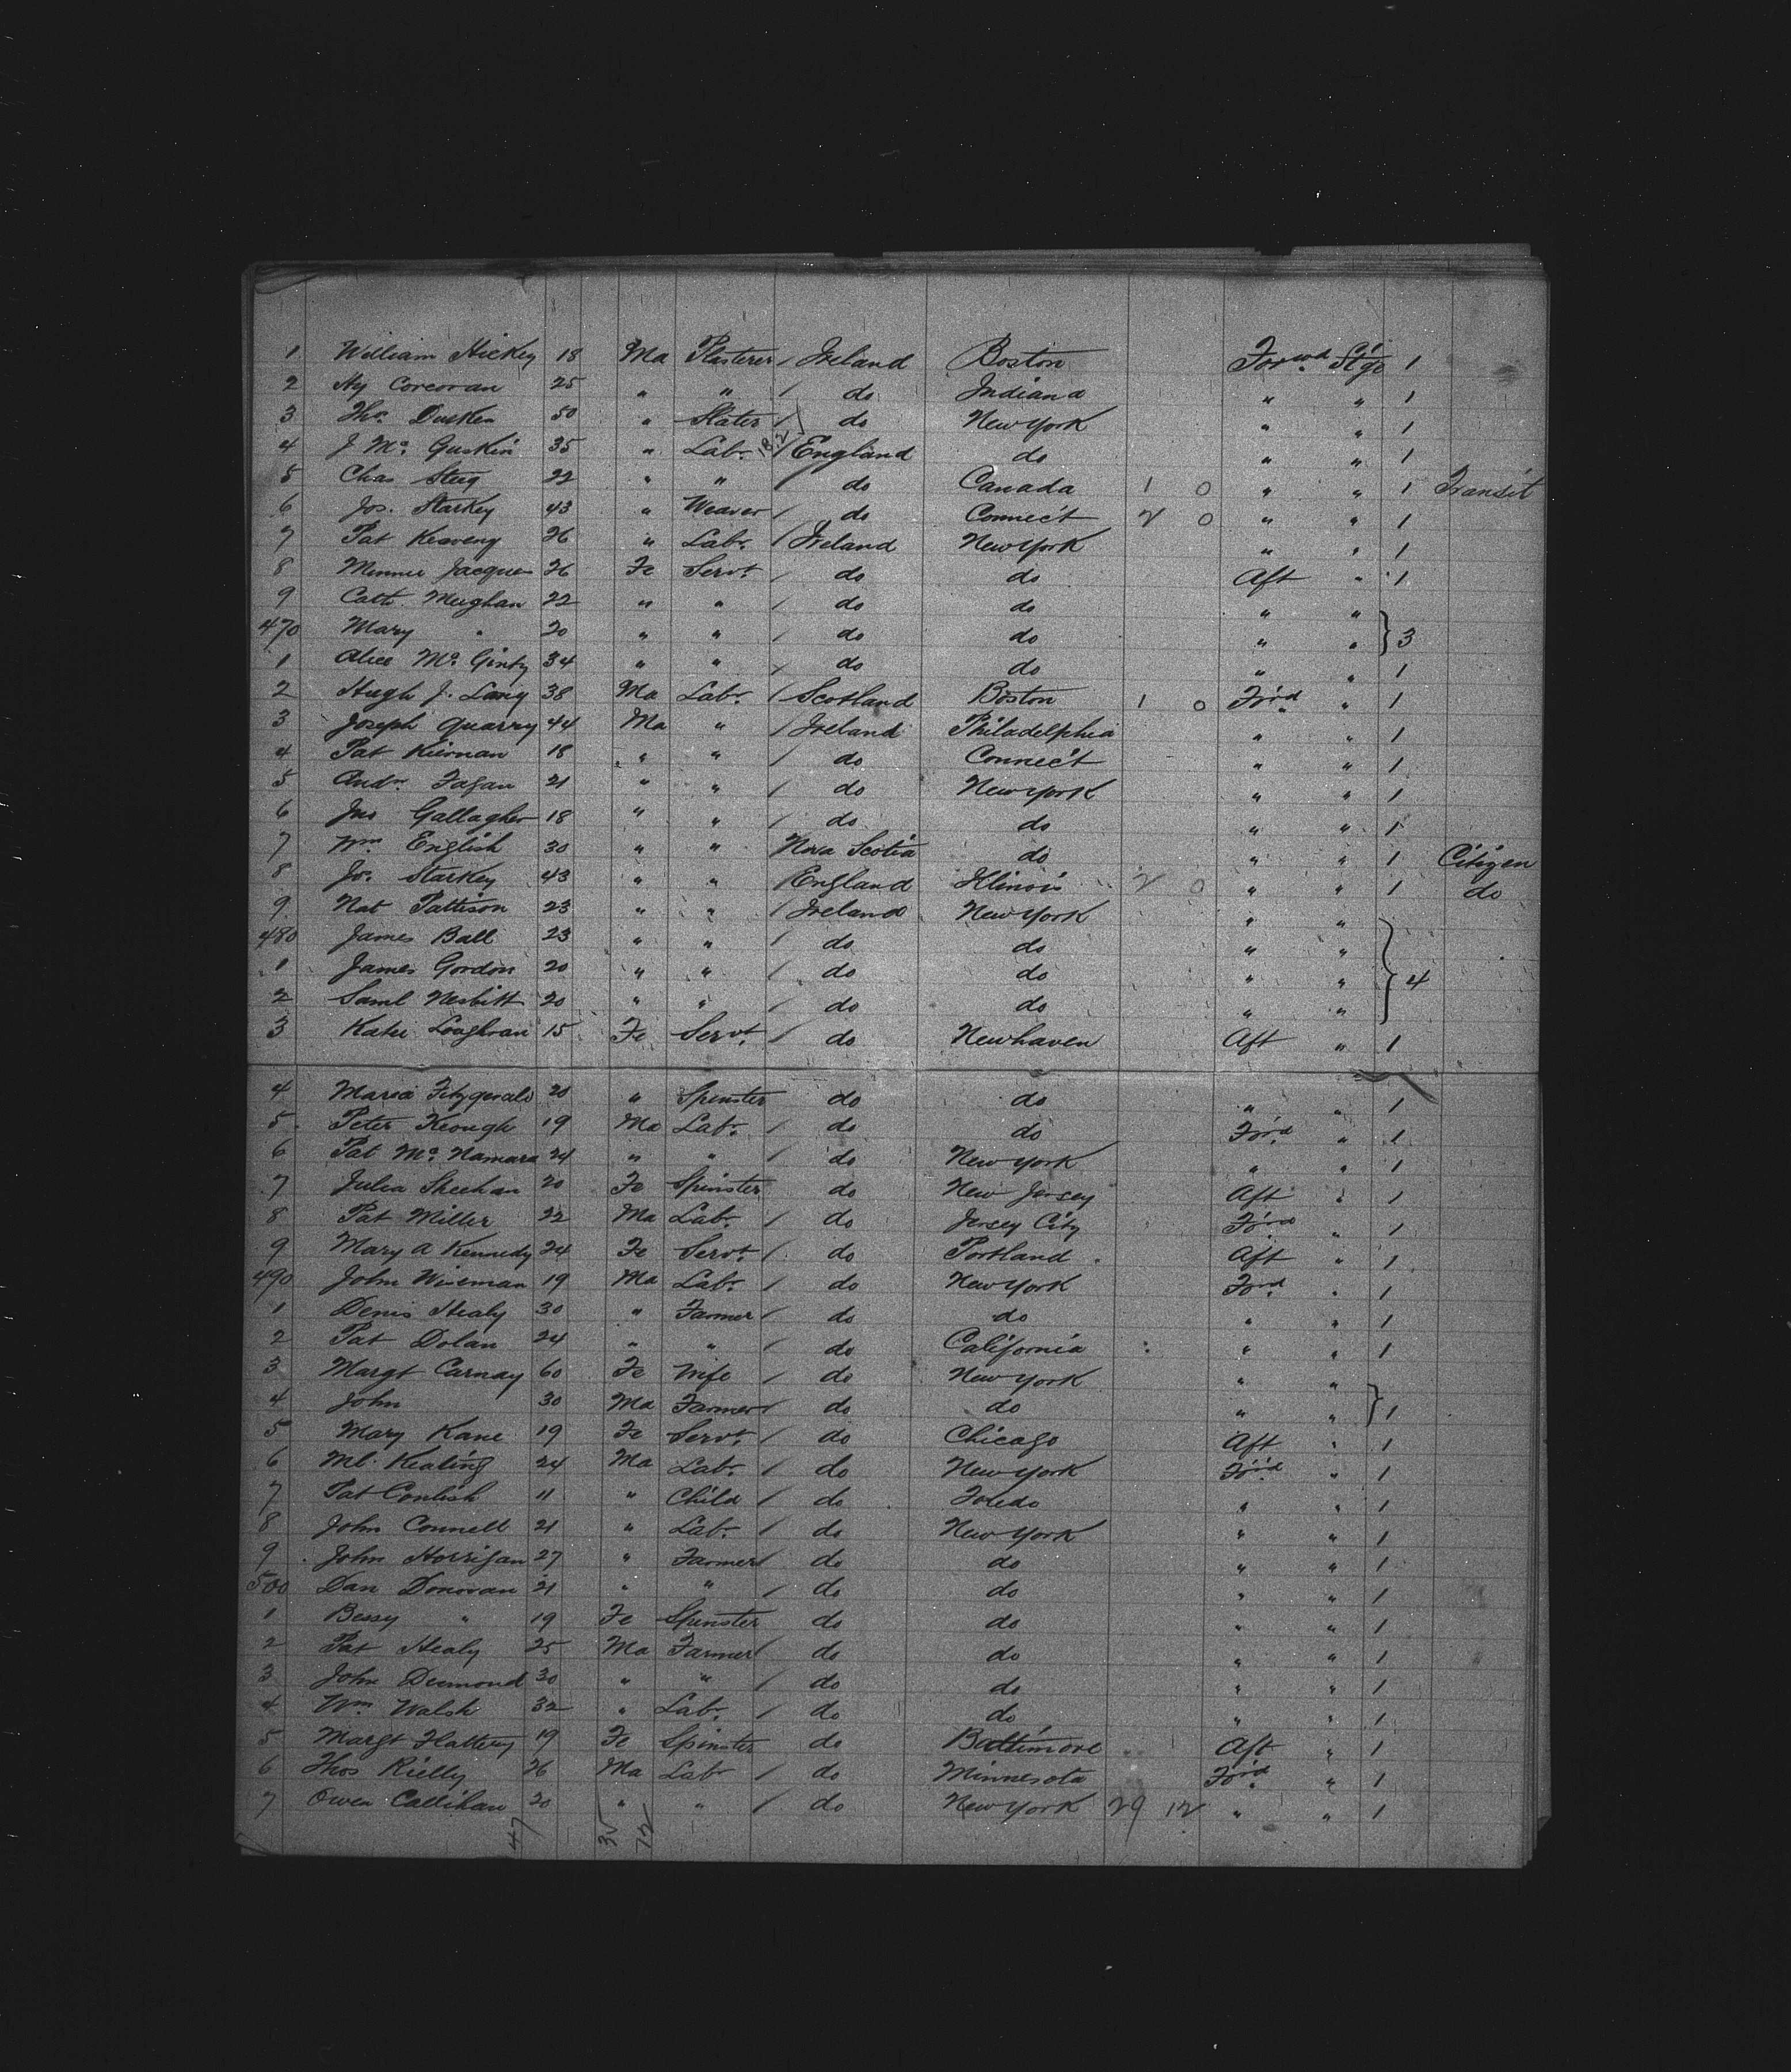 1 William Hickey 18 Ma Plasterer / Ireland Boston Forwd Stge 1
2 Hy Corcoran 25 " " / do Indiana " " 1
3 Thos Dusken 50 " Slater / do New York " " 1
4 J Mc Guskin 35 " Labr / England do " " 1
5 Chas Steeg 22 " " / do Canada 1 0 " " 1 Transit
6 Jos. Starkey 43 " Weaver / do Connect 2 0 " " 1
7 Pat Keaveny 26 " Labr / Ireland New York " " 1
8 Minnie Jacques 26 Fe Servt / do do Aft " 1
9 Cath. Meighan 22 " " / do do " "
470 Mary " 20 " " / do do " " } 3
1 Alice Mc Ginty 34 " " / do do " " 1
2 Hugh J. Lang 38 Ma Labr / Scotland Boston 1 0 Ford " 1
3 Joseph Quarry 44 Ma " / Ireland Philadelphia " " 1
4 Pat Kiernan 18 " " / do Connect " " 1
5 Andw Fagan 21 " " / do New York " " 1
6 Jno Gallagher 18 " " / do do " " 1
7 Wm English 30 " " Nova Scotia do " " 1 Citizen
8 Jo. Starkey 43 " " / England Illinois 2 0 " " 1 do
9 Nat Pattison 23 " " / Ireland New York " "
480 James Ball 23 " " / do do " "
1 James Gordon 20 " " / do do " " } 4
2 Saml Nesbitt 20 " " / do do " "
3 Kate Loughran 15 Fe Servt / do Newhaven Aft " 1
4 Maria Fitzgerald 20 " Spinster do do " " 1
5 Peter Keough 19 Ma Labr / do do Ford " 1
6 Pat Mc Namara 24 " " / do New York " " 1
7 Julia Sheehan 20 Fe Spinster do New Jersey Aft " 1
8 Pat Miller 22 Ma Labr / do Jersey City Ford " 1
9 Mary A Kennedy 24 Fe Servt / do Portland Aft " 1
490 John Wiseman 19 Ma Labr / do New York Ford " 1
1 Denis Healy 30 " Farmer / do do " " 1
2 Pat Dolan 24 " " / do California " " 1
3 Margt Carnay 60 Fe Wife / do New York " "
4 John 30 Ma Farmer / do do " " } 1
5 Mary Kane 19 Fe Servt / do Chicago Aft " 1
6 Ml. Keating 24 Ma Labr / do New York Ford " 1
7 Pat Conlish 11 " Child / do Toledo " " 1
8 John Connell 21 " Labr / do New York " " 1
9 John Horrigan 27 " Farmer / do do " " 1
500 Dan Donovan 21 " " / do do " " 1
1 Bessy " 19 Fe Spinster do do " " 1
2 Pat Healy 25 Ma Farmer / do do " " 1
3 John Desmond 30 " " / do do " " 1
4 Wm Walsh 32 " Labr / do do " " 1
5 Margt Flattery 19 Fe Spinster do Baltimore Aft " 1
6 Thos Rielly 26 Ma Labr / do Minnesota Ford " 1
7 Owen Callihan 20 " " / do New York 29 12 " " 1
47 35 12